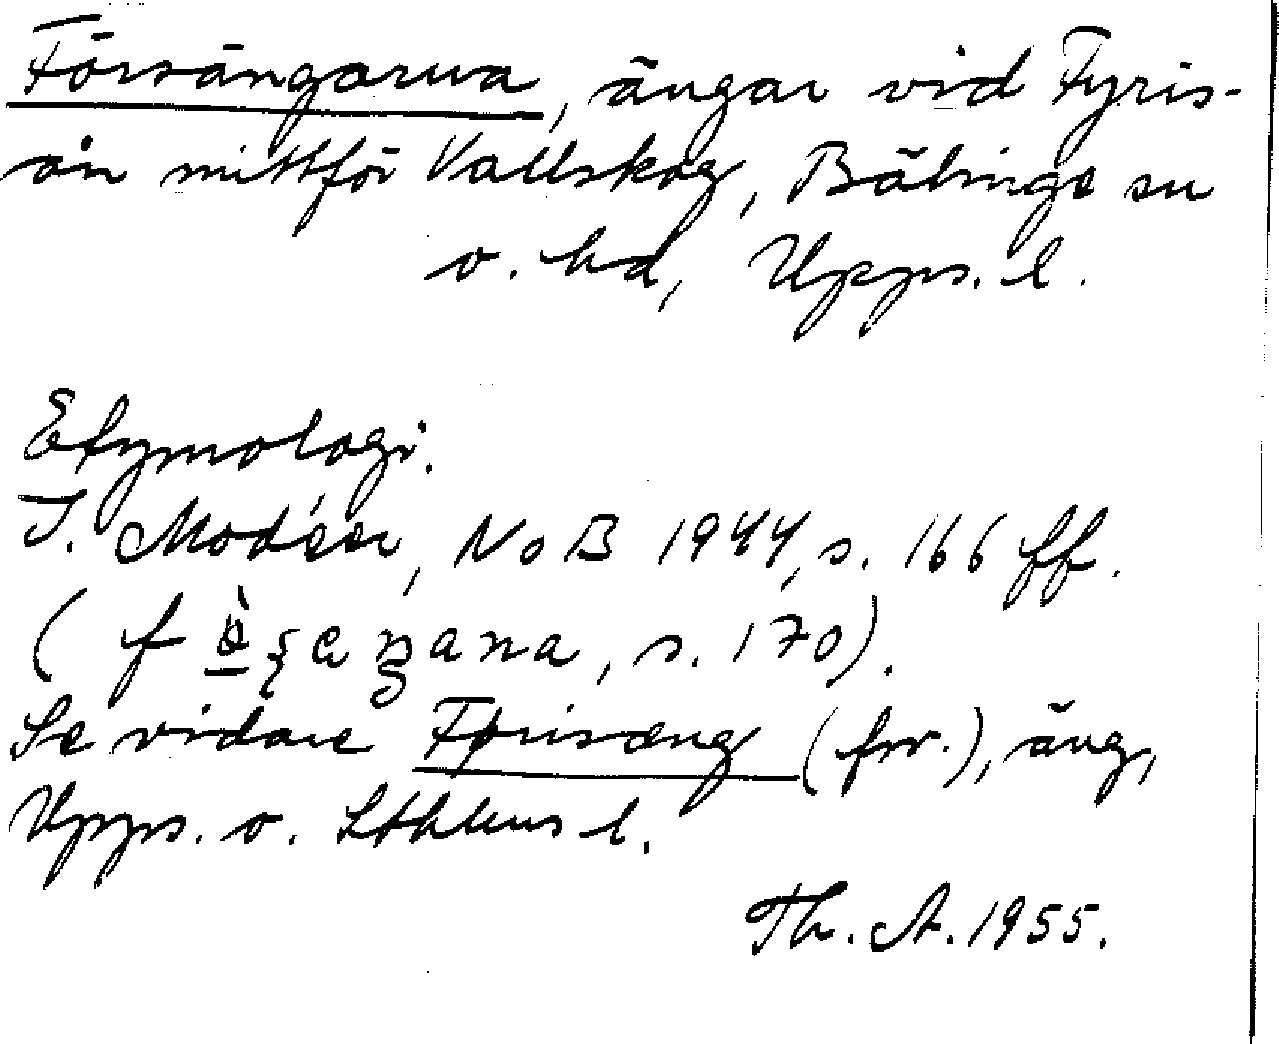 Försängarna, ängar vid Fyris-
ån mittför Vallskog, Bälinge sn
o. hd, Upps. l.
Etymologi.
I. Modéer, NoB 1944, s. 166 ff.
( s. 170).
Se vidare Førisæng (fsv.), äng,
Upps. o. Sthlms l.
Th. A. 1955.